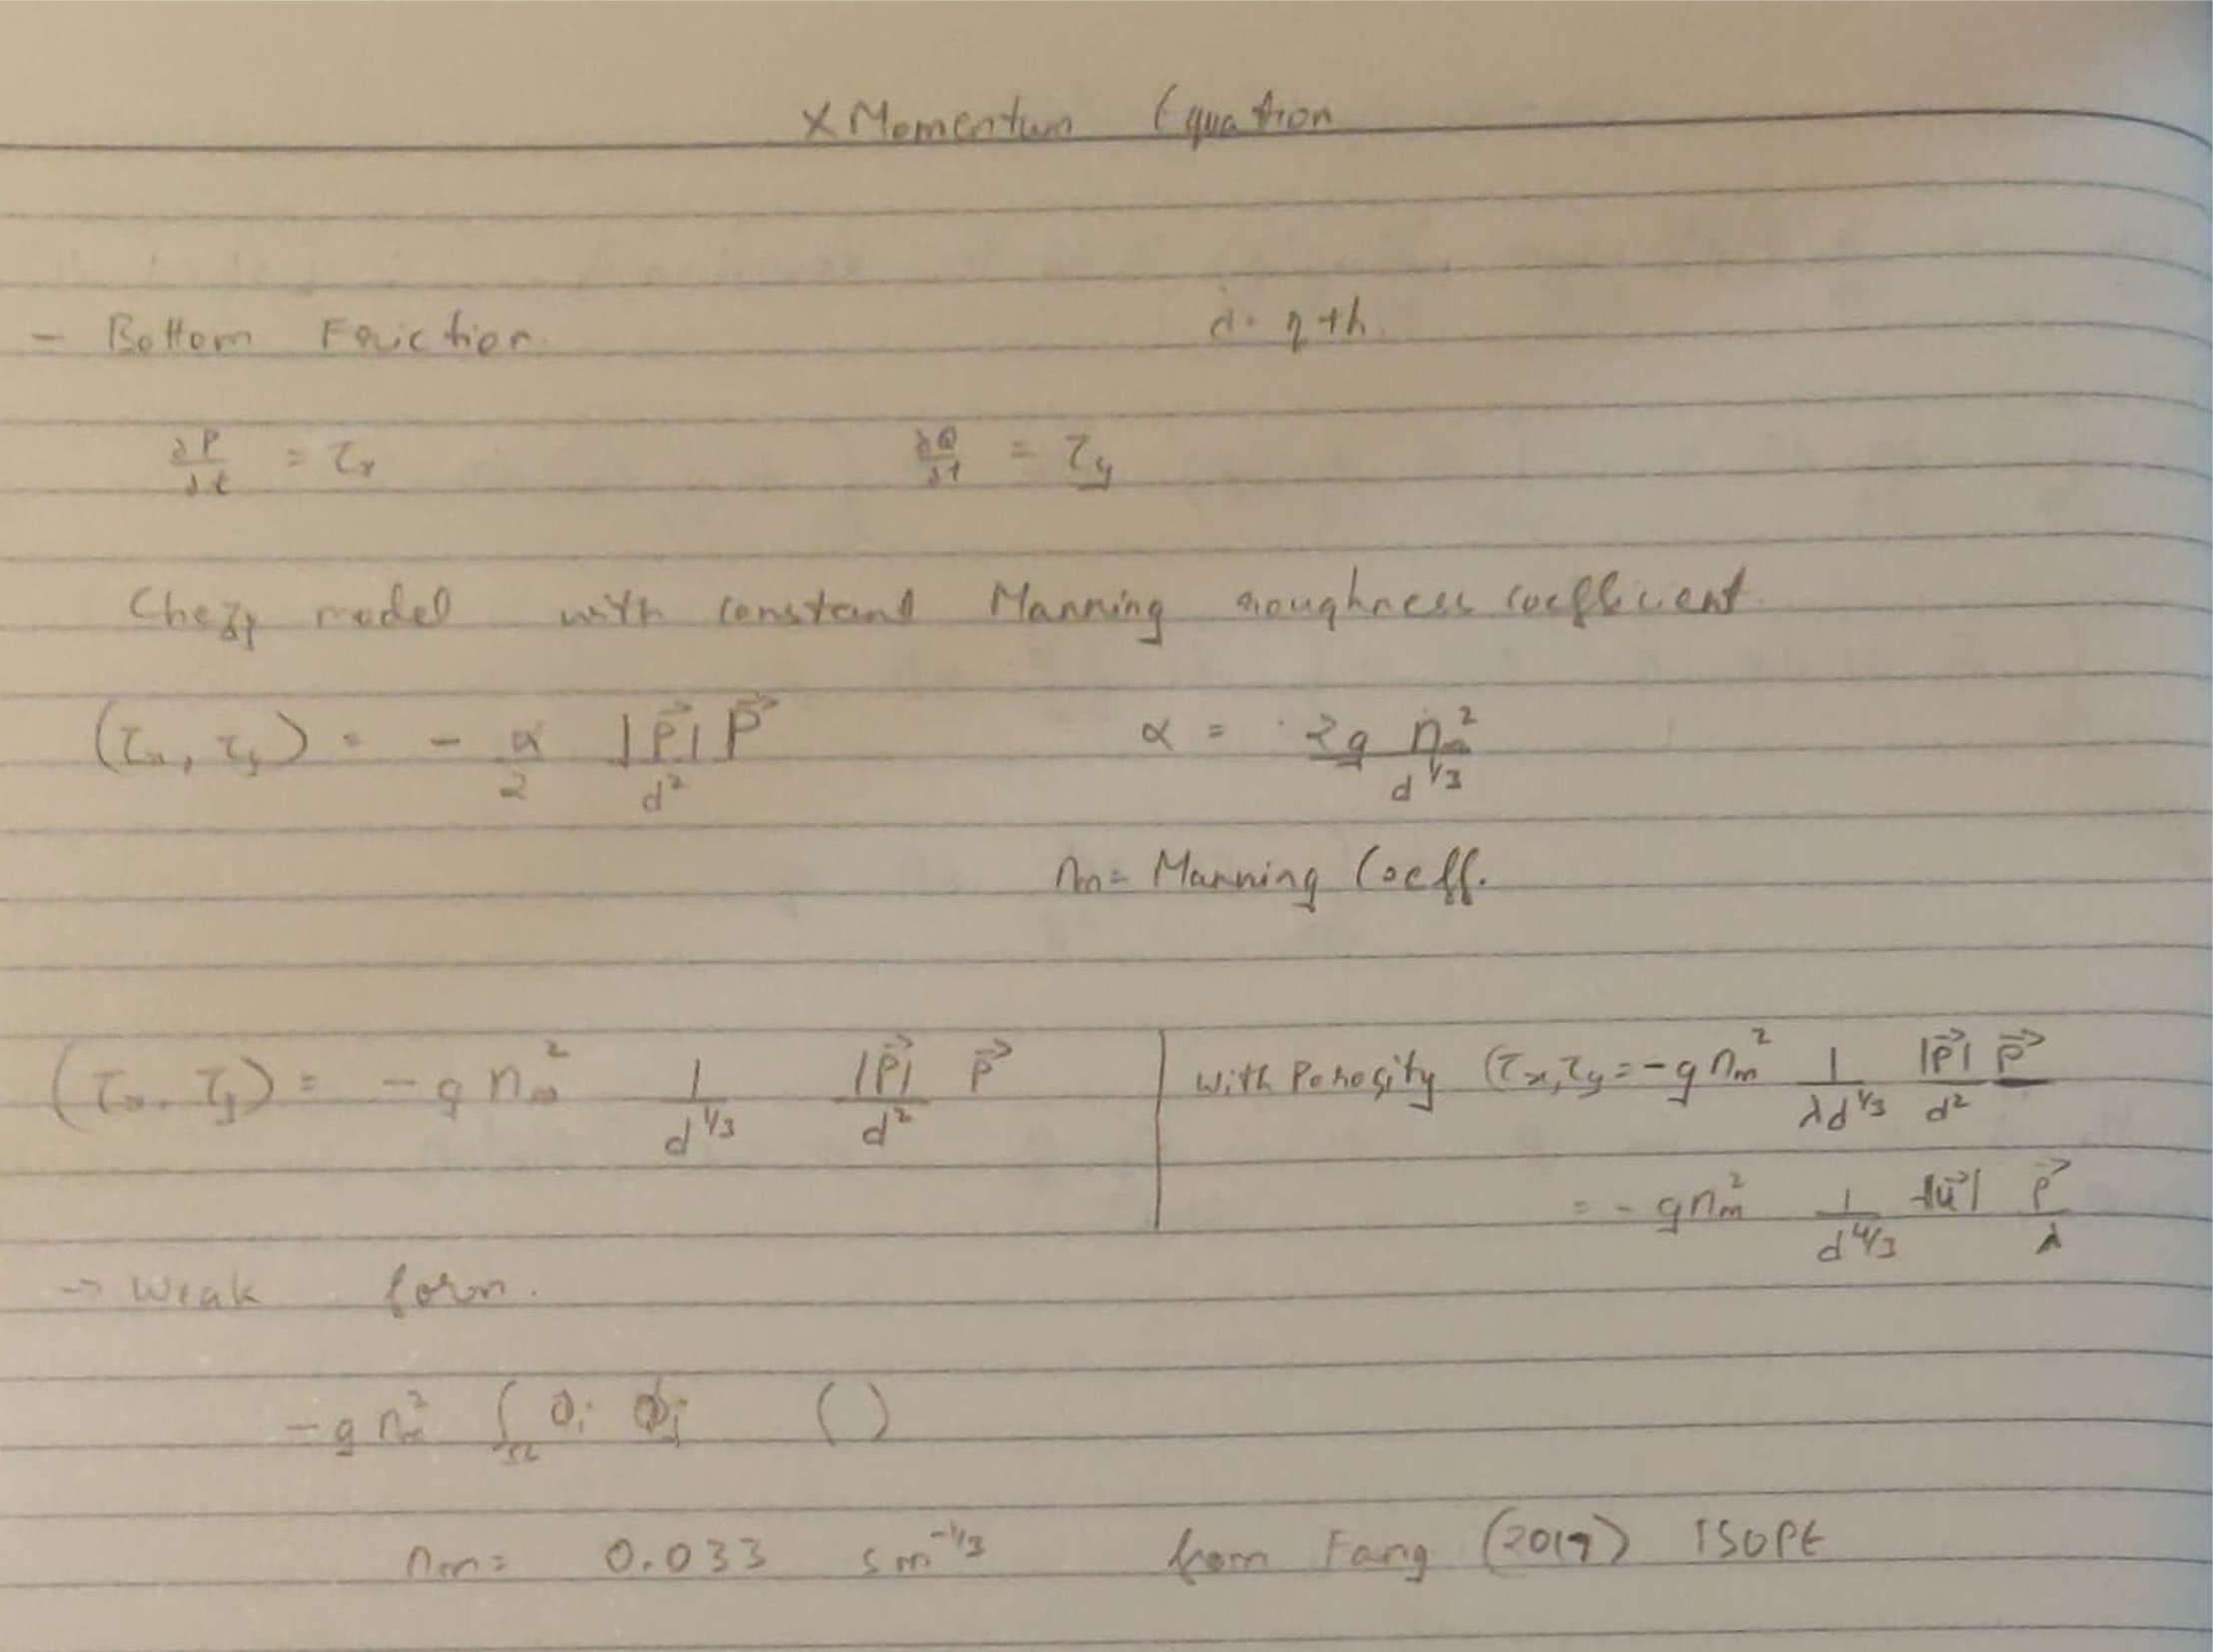 X Momentum Equation
- Bottom Friction. d = η + h.
∂P/∂t = τx ∂Q/∂t = τy
Chezy model with constant Manning roughness coefficient.
(τx, τy) = - α/2 |P⃗|/d² P⃗ α = 2g nm²/d^1/3
nm = Manning Coeff.
(τx, τy) = -g nm² 1/d^1/3 |P⃗|/d² P⃗
with Porosity (τx, τy = -g nm² 1/λd^1/3 |P⃗|/d² P⃗
= - g nm² 1/d^4/3 |u⃗| P⃗/λ
→ Weak form.
-g nm² ∫Ω ∅i ∅j ( )
nm = 0.033 s m^-1/3 from Fang (2019) ISOPE